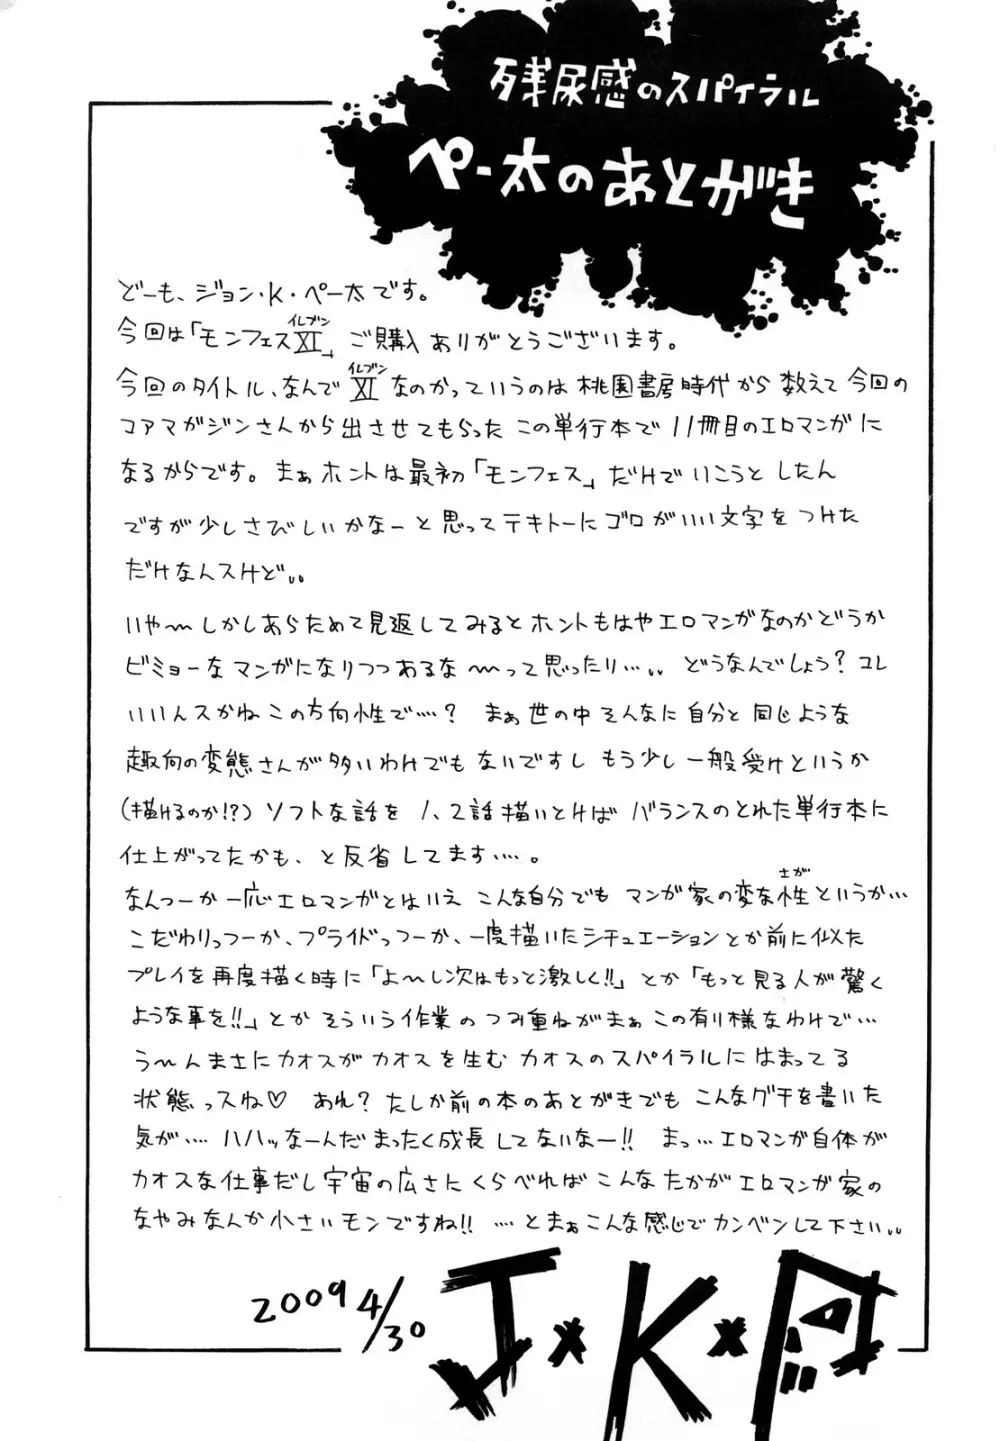 残尿感のスパイラル
ペー太のあとがき
どーも、ジョン・K・ペー太です。
今回は「モンフェスXI」ご購入ありがとうございます。
イレブン
今回のタイトル、なんでXIなのかっていうのは桃園書房時代から数えて今回の
イレブン
コアマガジンさんから出させてもらったこの単行本で11冊目のエロマンガに
なるからです。まぁホントは最初「モンフェス」だけでいこうとしたん
ですが少しさびしいかなーと思ってテキトーにゴロがいい文字をつけた
だけなんスけど〟
いや〜しかしあらためて見返してみるとホントもはやエロマンガなのかどうか
ビミョーなマンガになりつつあるな〜って思ったり…〟どうなんでしょう？コレ
いいんスかねこの方向性で…？まぁ世の中そんなに自分と同じような
趣向の変態さんが多いわけでもないですしもう少し一般受けというか
(描けるのか!?)ソフトな話を1、2話描いとけばバランスのとれた単行本に
仕上がってたかも、と反省してます…。
なんつーか一応エロマンガとはいえこんな自分でもマンガ家の変な性というか…
さが
こだわりっつーか、プライドっつーか、一度描いたシチュエーションとか前に似た
プレイを再度描く時に「よ〜し次はもっと激しく!!」とか「もっと見る人が驚く
ような事を!!」とかそういう作業のつみ重ねがまぁこの有り様なわけで…
う〜んまさにカオスがカオスを生むカオスのスパイラルにはまってる
状態っスね♡ あれ？たしか前の本のあとがきでもこんなグチを書いた
気が…ハハッなーんだまったく成長してないなー!! まっ…エロマンガ自体が
カオスな仕事だし宇宙の広さにくらべればこんなたかがエロマンガ家の
なやみなんか小さいモンですね!! …とまぁこんな感じでカンベンして下さい〟
2009 4/30
J×K×P